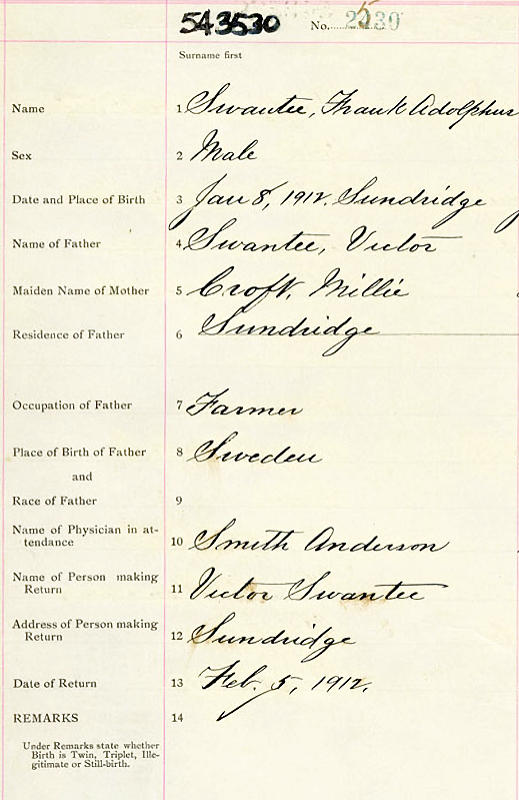 543530 No. 2230
5
Surname first
Name 1 Swantee, Frank Adolphus
Sex 2 Male
Date and Place of Birth 3 Jan 8, 1912. Sundridge
Name of Father 4 Swantee, Victor
Maiden Name of Mother 5 Croft, Millie
Residence of Father 6 Sundridge
Occupation of Father 7 Farmer
Place of Birth of Father 8 Sweden
and
Race of Father 9
Name of Physician in at-
tendance 10 Smith Anderson
Name of Person making
Return 11 Victor Swantee
Address of Person making
Return 12 Sundridge
Date of Return 13 Feb. 5, 1912.
REMARKS 14
Under Remarks state whether
Birth is Twin, Triplet, Ille-
gitimate or Still-birth.